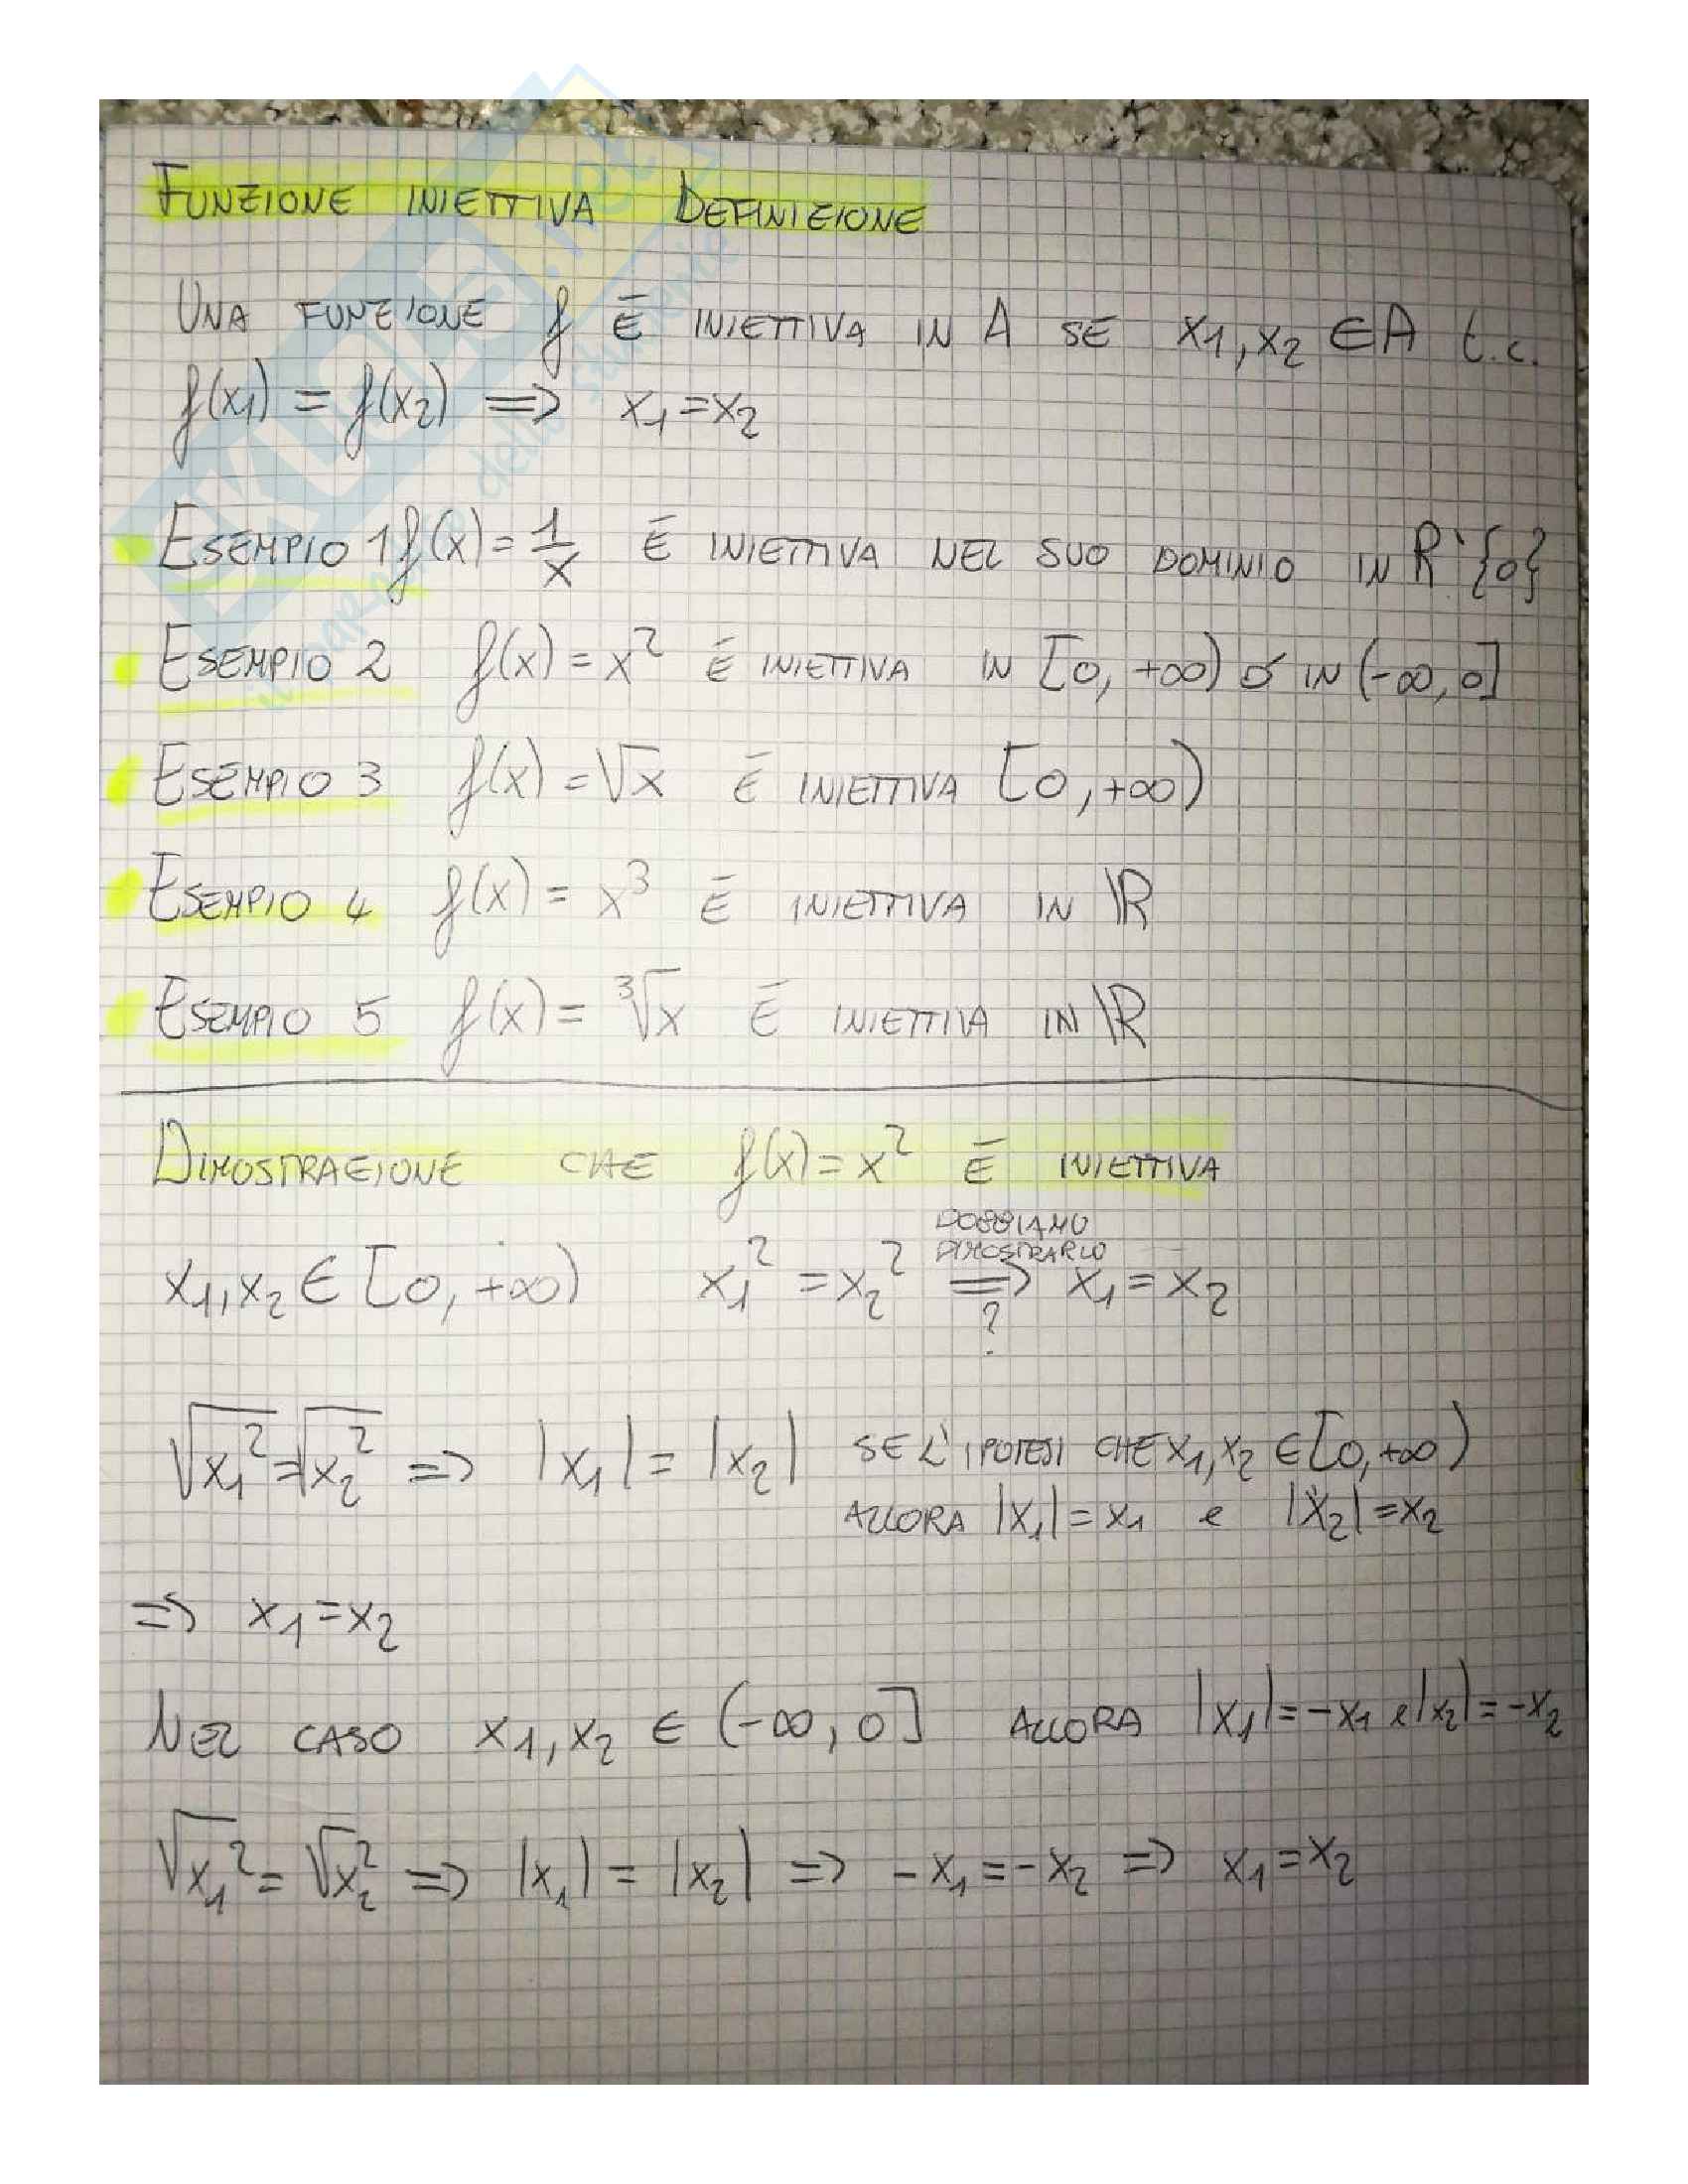 FUNZIONE INIETTIVA DEFINIZIONE
UNA FUNZIONE f Ē INIETTIVA IN A SE x1, x2 ∈ A t.c.
f(x1) = f(x2) => x1 = x2
ESEMPIO 1 f(x) = 1/x Ē INIETTIVA NEL SUO DOMINIO IN R \ {0}
ESEMPIO 2 f(x) = x² Ē INIETTIVA IN [0, +∞) ó IN (-∞, 0]
ESEMPIO 3 f(x) = √x Ē INIETTIVA [0, +∞)
ESEMPIO 4 f(x) = x³ Ē INIETTIVA IN ℝ
ESEMPIO 5 f(x) = ³√x Ē INIETTIVA IN ℝ
DIMOSTRAZIONE CHE f(x) = x² Ē INIETTIVA
DOBBIAMO
DIMOSTRARLO
x1, x2 ∈ [0, +∞) x1² = x2² => x1 = x2
?
√x1² = √x2² => |x1| = |x2| SE L'IPOTESI CHE x1, x2 ∈ [0, +∞)
ALLORA |x1| = x1 e |x2| = x2
=> x1 = x2
NEL CASO x1, x2 ∈ (-∞, 0] ALLORA |x1| = -x1 e |x2| = -x2
√x1² = √x2² => |x1| = |x2| => -x1 = -x2 => x1 = x2